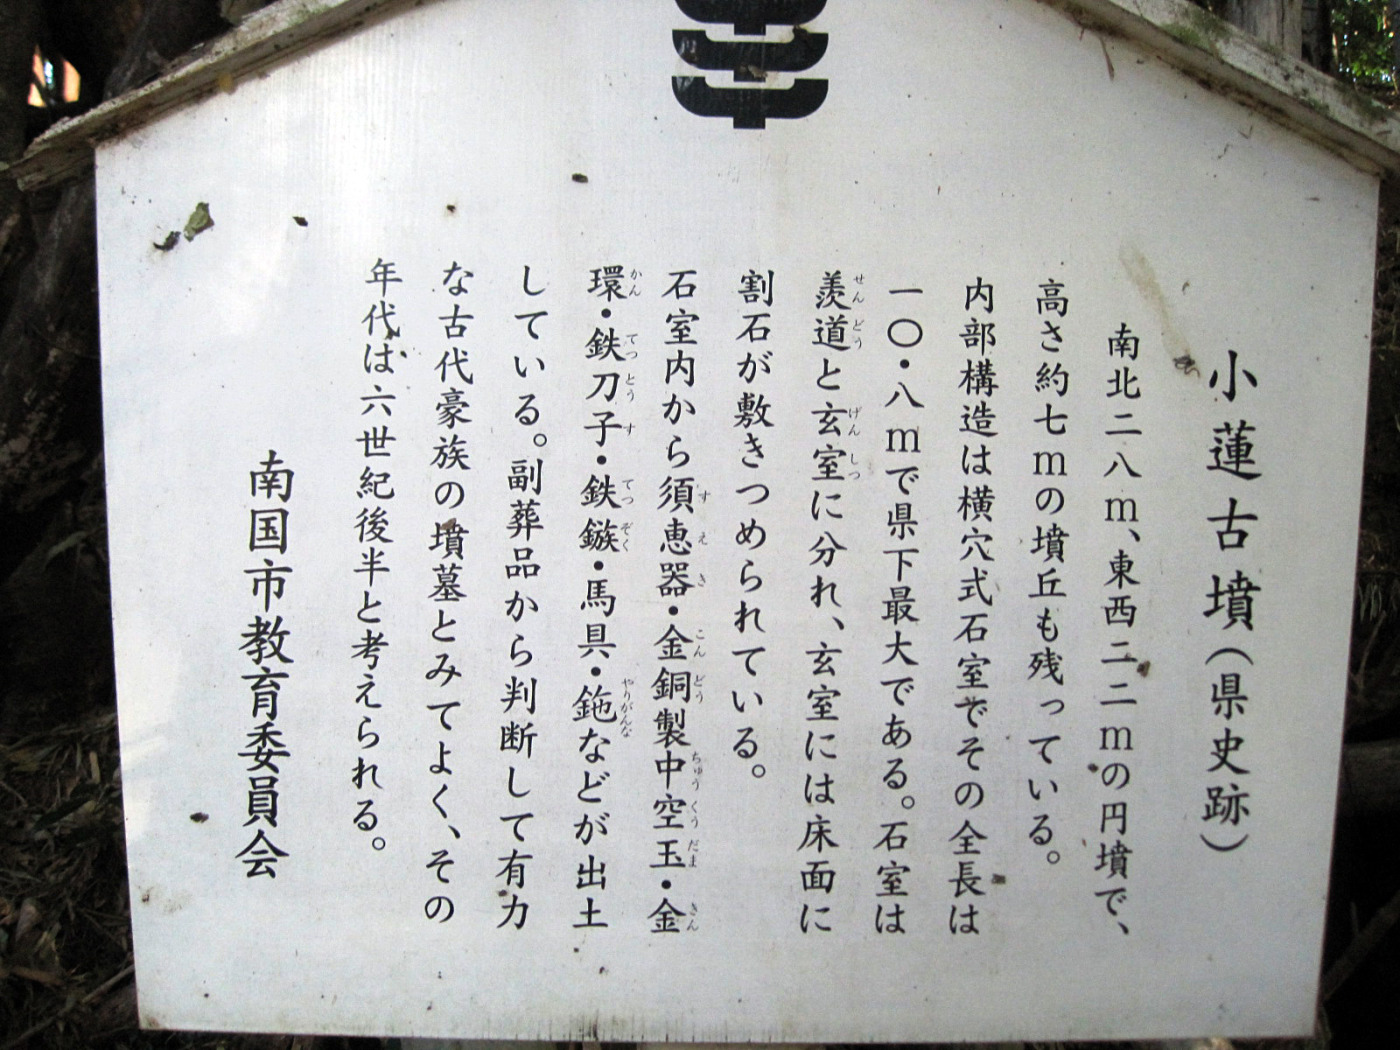 小蓮古墳（県史跡）
南北二八m、東西二二mの円墳で、
高さ約七mの墳丘も残っている。
内部構造は横穴式石室でその全長は
一〇・八mで県下最大である。石室は
羨道と玄室に分れ、玄室には床面に
割石が敷きつめられている。
石室内から須恵器・金銅製中空玉・金
環・鉄刀子・鉄鏃・馬具・鉇などが出土
している。副葬品から判断して有力
な古代豪族の墳墓とみてよく、その
年代は六世紀後半と考えられる。
南国市教育委員会